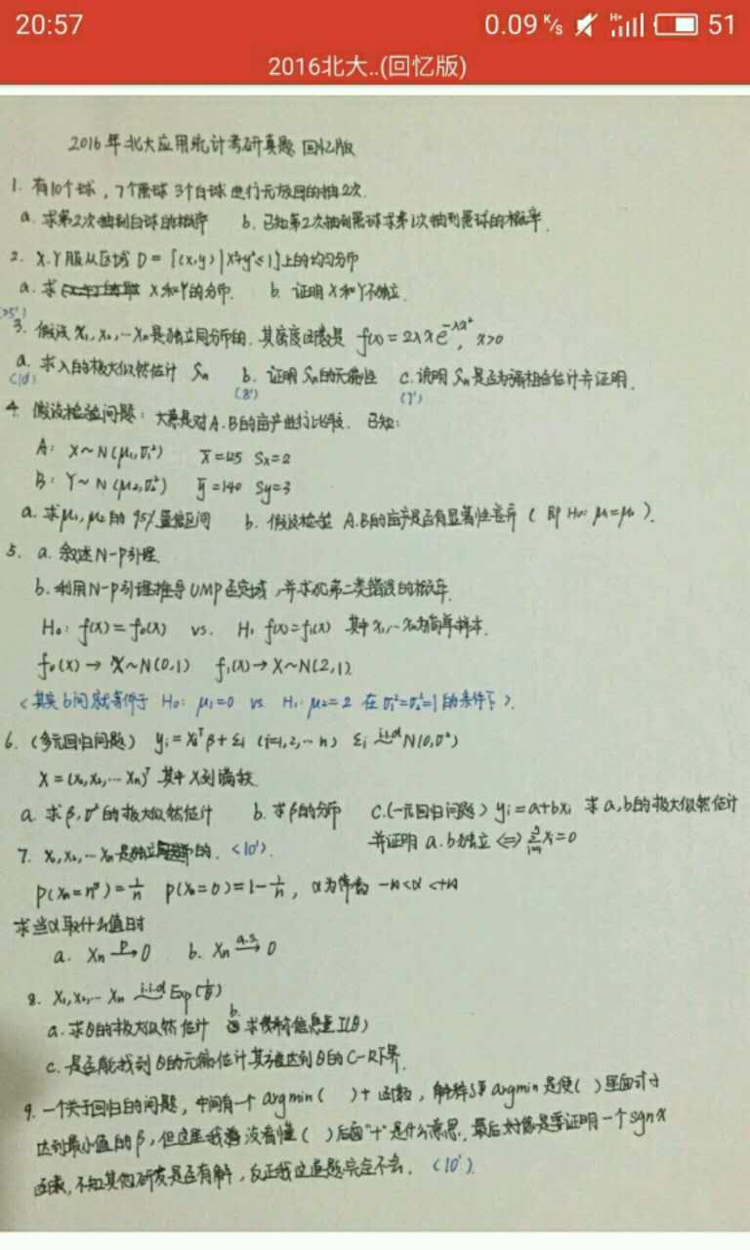 20:57 0.09 K/s 51
2016北大..(回忆版)
2016年北大应用统计考研真题 回忆版
1. 有10个球，7个黑球 3个白球 进行无放回的抽2次.
a. 求第2次抽到白球的概率 b. 已知第2次抽到黑球求第1次抽到黑球的概率.
2. X.Y服从区域 D={(x,y)|x²+y²≤1}上的均匀分布
a. 求 X和Y的分布. b. 证明X和Y不独立.
3. 假设 x₁,x₂,…xₙ是独立同分布的. 其密度函数是 f(x)=2λxe^{-λx²}, x>0
a. 求λ的极大似然估计 Sₙ b. 证明Sₙ的无偏性 c. 说明Sₙ是否为强相合估计并证明.
(10') (8') (7')
4. 假设检验问题：大意是对A.B的亩产进行比较. 已知：
A: X~N(μ₁,σ₁²) x̄=125 Sx=2
B: Y~N(μ₂,σ₂²) ȳ=140 Sy=3
a. 求μ₁,μ₂的95%置信区间 b. 假设检验 A.B的亩产是否有显著性差异 (即H₀: μ₁=μ₂).
5. a. 叙述N-P引理.
b. 利用N-P引理推导UMP否定域，并求犯第二类错误的概率.
H₀: f(x)=f₀(x) vs. H₁ f(x)=f₁(x) 其中x₁,…xₙ为简单样本.
f₀(x)→X~N(0,1) f₁(x)→X~N(2,1)
<其实b问就等价于 H₀: μ₁=0 vs H₁: μ₂=2 在σ₁²=σ₂²=1的条件下>.
6. (多元回归问题) yᵢ=xᵢᵀβ+εᵢ (i=1,2,…n) εᵢ i.i.d N(0,σ²)
X=(x₁,x₂,…xₙ)ᵀ 其中X列满秩.
a. 求β,σ²的极大似然估计 b. 求β的分布 c.(一元回归问题) yᵢ=a+bxᵢ 求a,b的极大似然估计
并证明a.b独立⇔Σxᵢ=0
7. x₁,x₂,…xₙ是独立的. <10'>.
p(xₙ=n^α)=1/n p(xₙ=0)=1-1/n, α为常数 -∞<α<+∞
求当α取什么值时
a. Xₙ P→0 b. Xₙ a.s.→0
8. x₁,x₂,…xₙ i.i.d Exp(1/θ)
a. 求θ的极大似然估计 b. 求费希尔信息量I(θ)
c. 是否能找到θ的无偏估计其方差达到θ的C-R下界.
9. 一个关于回归的问题，中间有一个argmin( )+ 函数，解释了argmin是使( )里面式子
达到最小值的β，但这里我没有看懂( )后面"+"是什么意思. 最后好像是要证明一个sgnx
函数，不知其他研友是否有解，反正我这道题完全不会. (10').